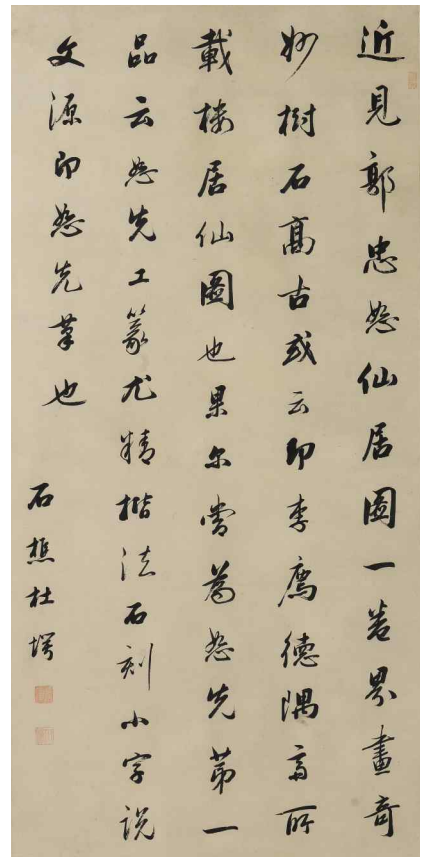 近見郭忠恕仙居圖一卷界畫奇
妙樹石高古或云即李廌德隅齋所
載樓居仙圖也果尔當為恕先第一
品云恕先工篆尤精楷法石刻小字説
文源即恕先筆也
石樵杜堮